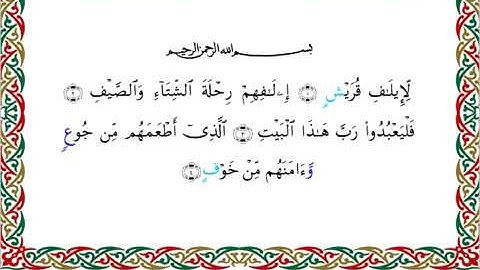 بسم الله الرحمن الرحيم
لِّإِيلَٰفِ قُرَيْشٍ ۝١ إِۦلَٰفِهِمْ رِحْلَةَ الشِّتَآءِ وَالصَّيْفِ ۝٢
فَلْيَعْبُدُوا۟ رَبَّ هَٰذَا الْبَيْتِ ۝٣ الَّذِىٓ أَطْعَمَهُم مِّن جُوعٍ
وَّءَامَنَهُم مِّنْ خَوْفٍۭ ۝٤